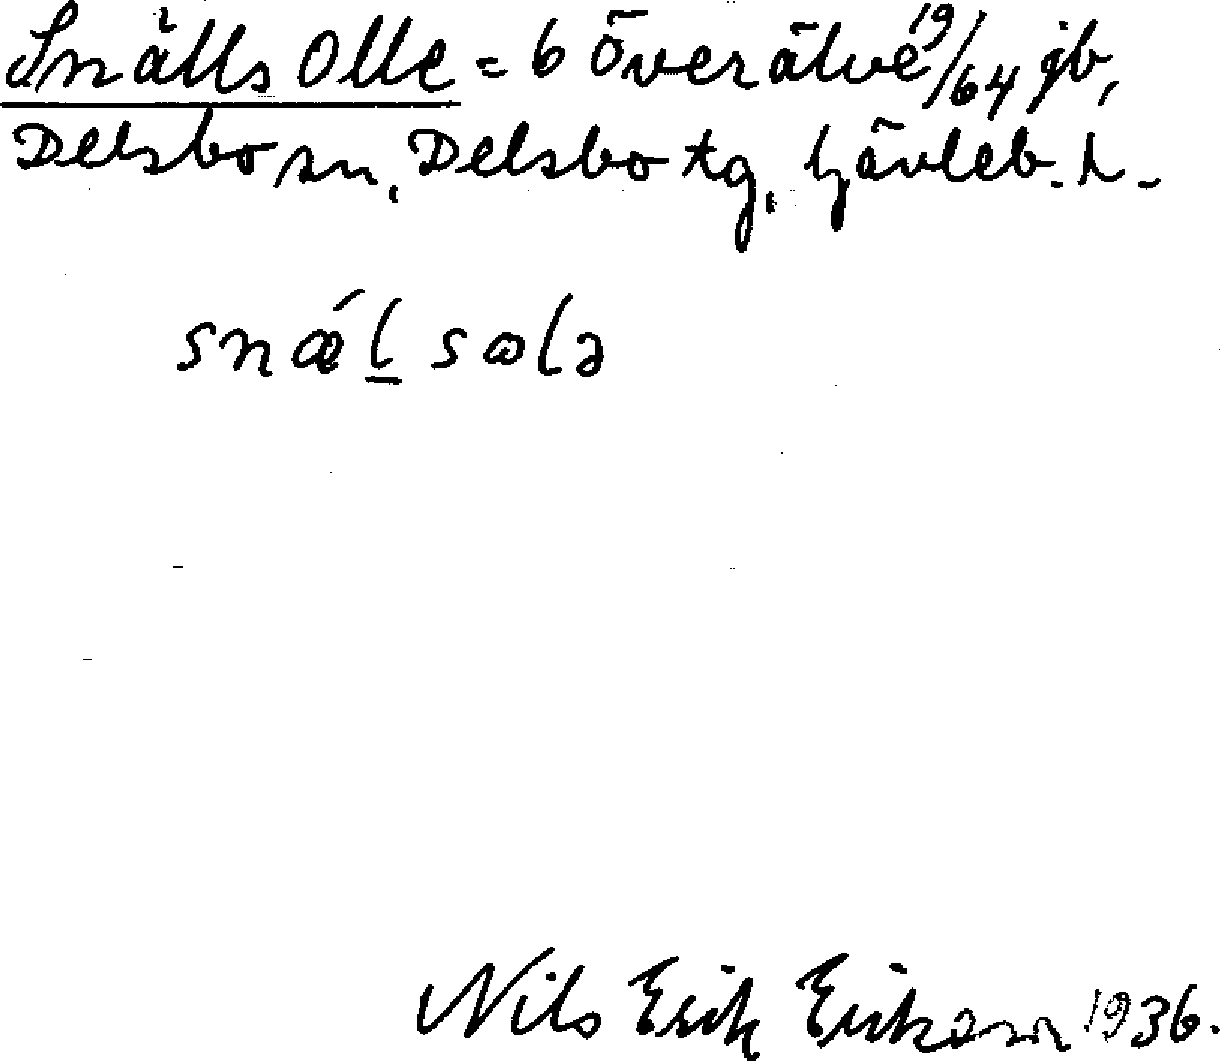 Snälls Olle = 6 Överälve 19/64 jb,
Delsbo sn, Delsbo tg, Gävleb. l.
snǽl̲sɷlə
Nils Erik Erikson 1936.